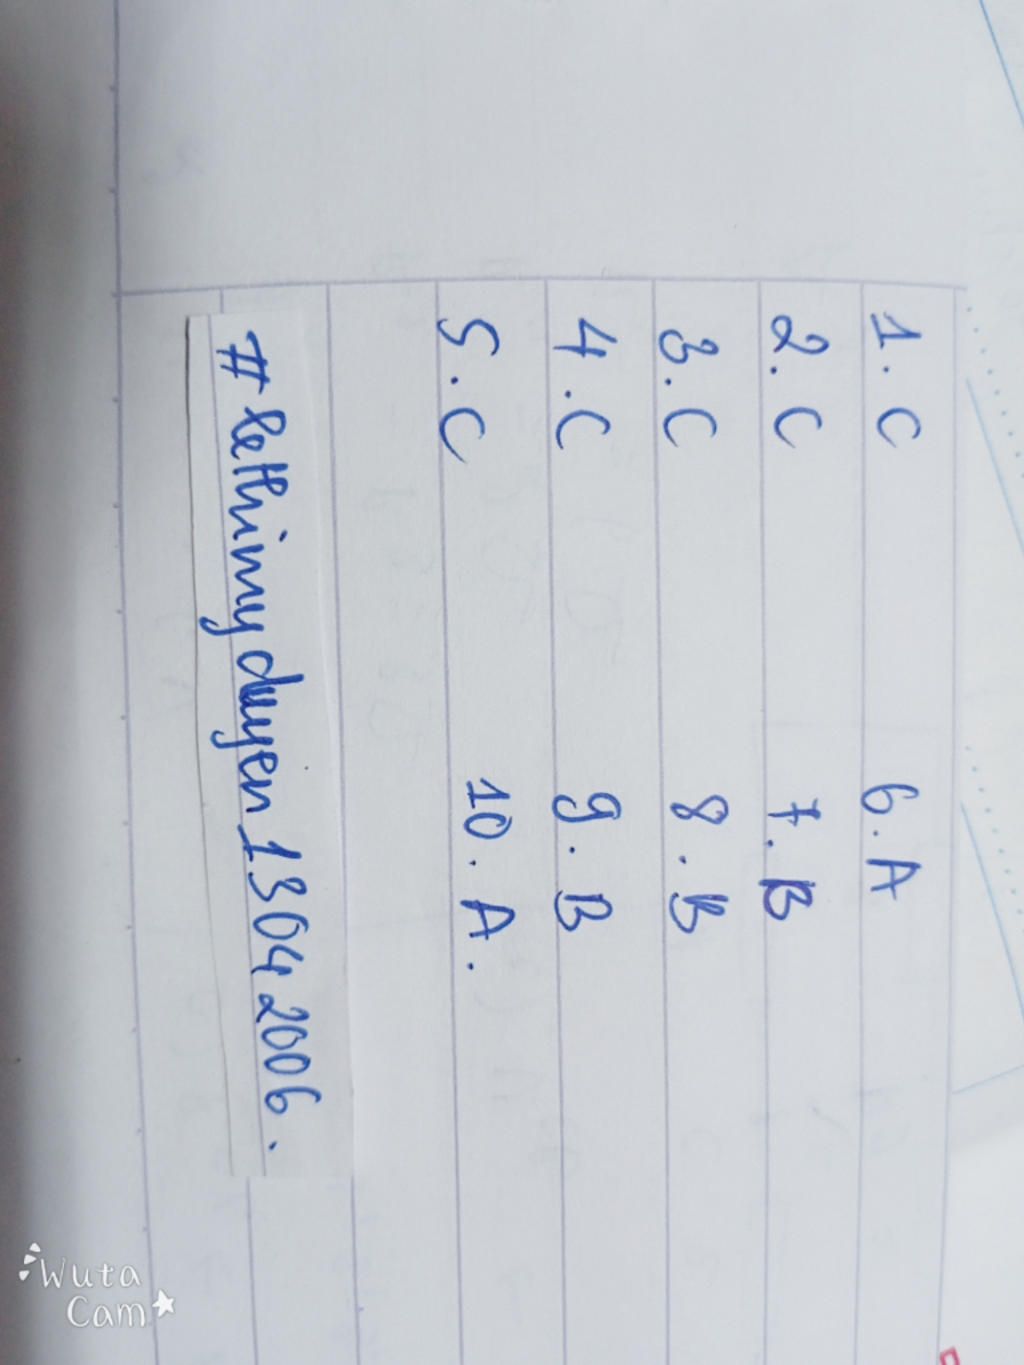 1. C 6. A
2. C 7. B
3. C 8. B
4. C 9. B
5. C 10. A.
#lethimyduyen13042006.
Wuta
Cam